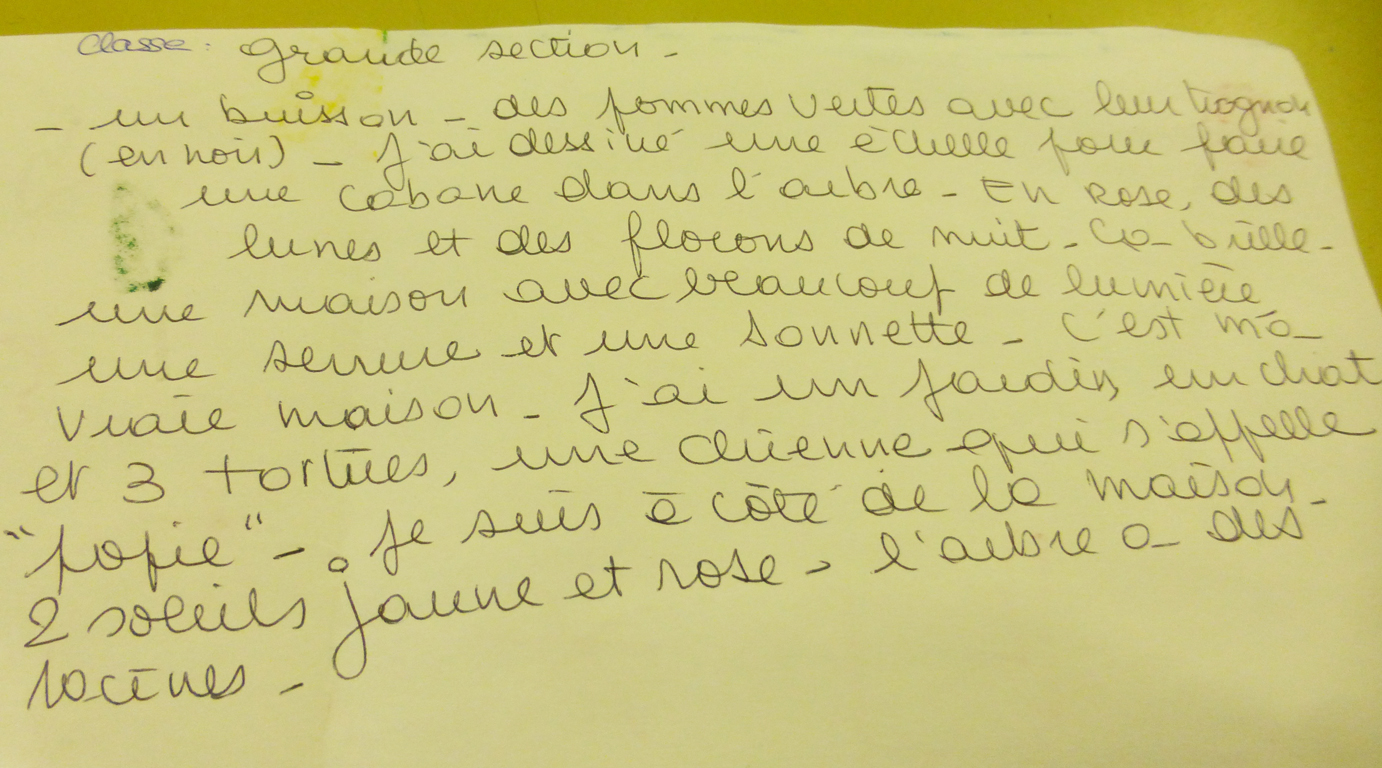 Classe : Grande section -
- un buisson - des pommes vertes avec leur trognon
(en noir) - J'ai dessiné une échelle pour faire
une cabane dans l'arbre - En rose, des
lunes et des flocons de nuit - ça brille -
une maison avec beaucoup de lumière
une serrure et une sonnette - C'est ma
vraie maison - J'ai un jardin, un chat
et 3 tortues, une chienne qui s'appelle
"popie" - Je suis à côté de la maison -
2 soleils jaune et rose - l'arbre a des
racines -